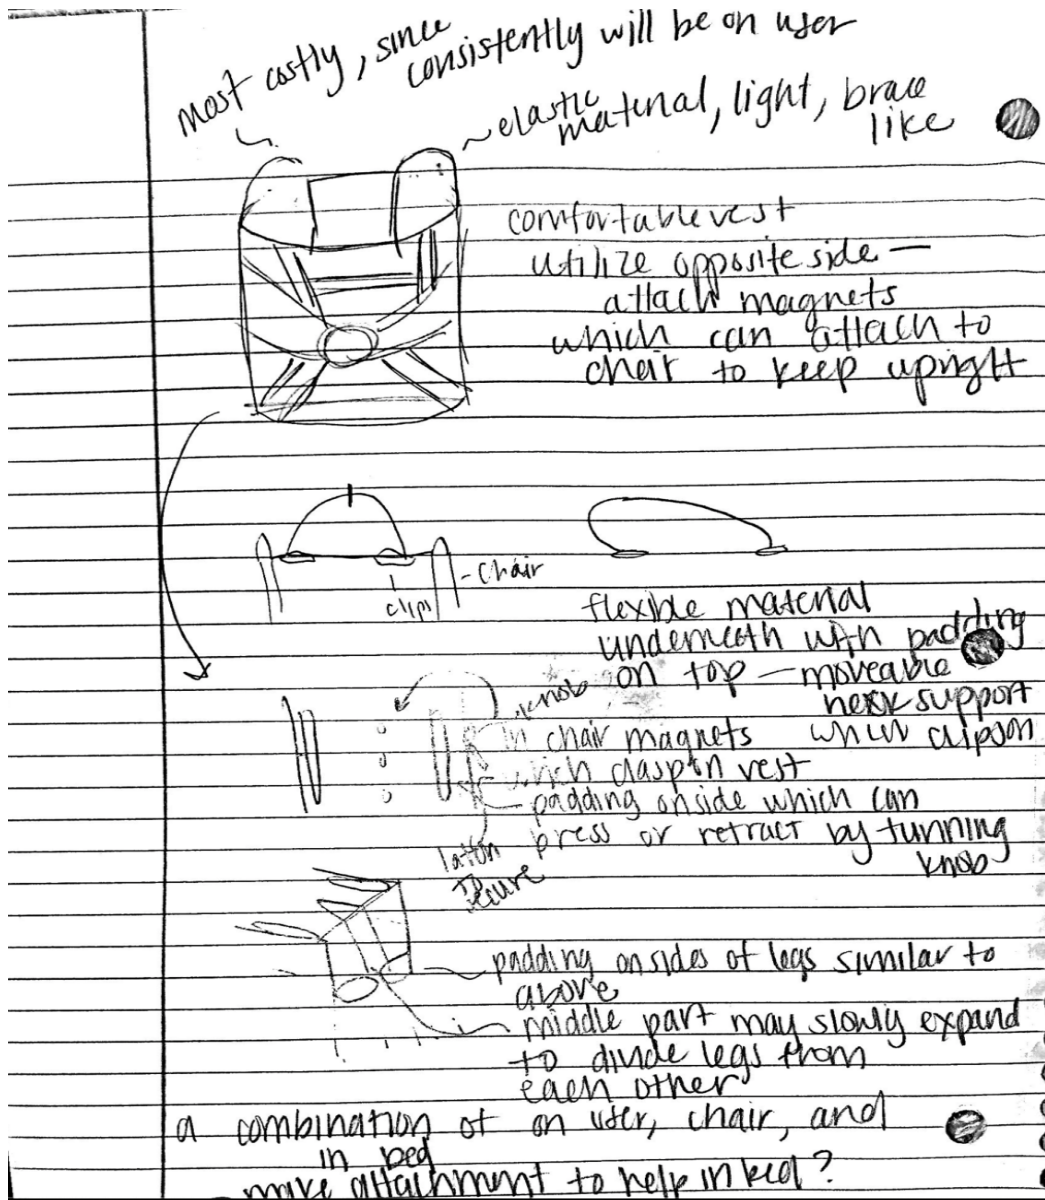 most costly, since
consistently will be on user
elastic
material, light, brace
like
comfortable vest
utilize opposite side —
attach magnets
which can attach to
chair to keep upright
- chair
clip
flexible material
underneath with padding
on top — moveable
neck support
which clips on
knob
in chair magnets
which clasp in vest
padding on side which can
press or retract by turning
knob
to
secure
padding on sides of legs similar to
above
middle part may slowly expand
to divide legs from
each other
a combination of on user, chair, and
in bed
make attachment to help in bed?